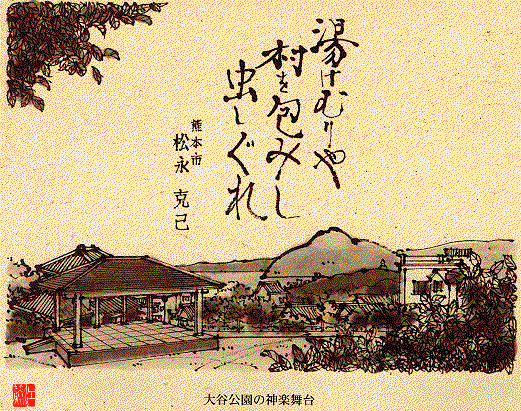 湯けむりや
村を包みし
虫しぐれ
熊本市
松永 克己
大谷公園の神楽舞台